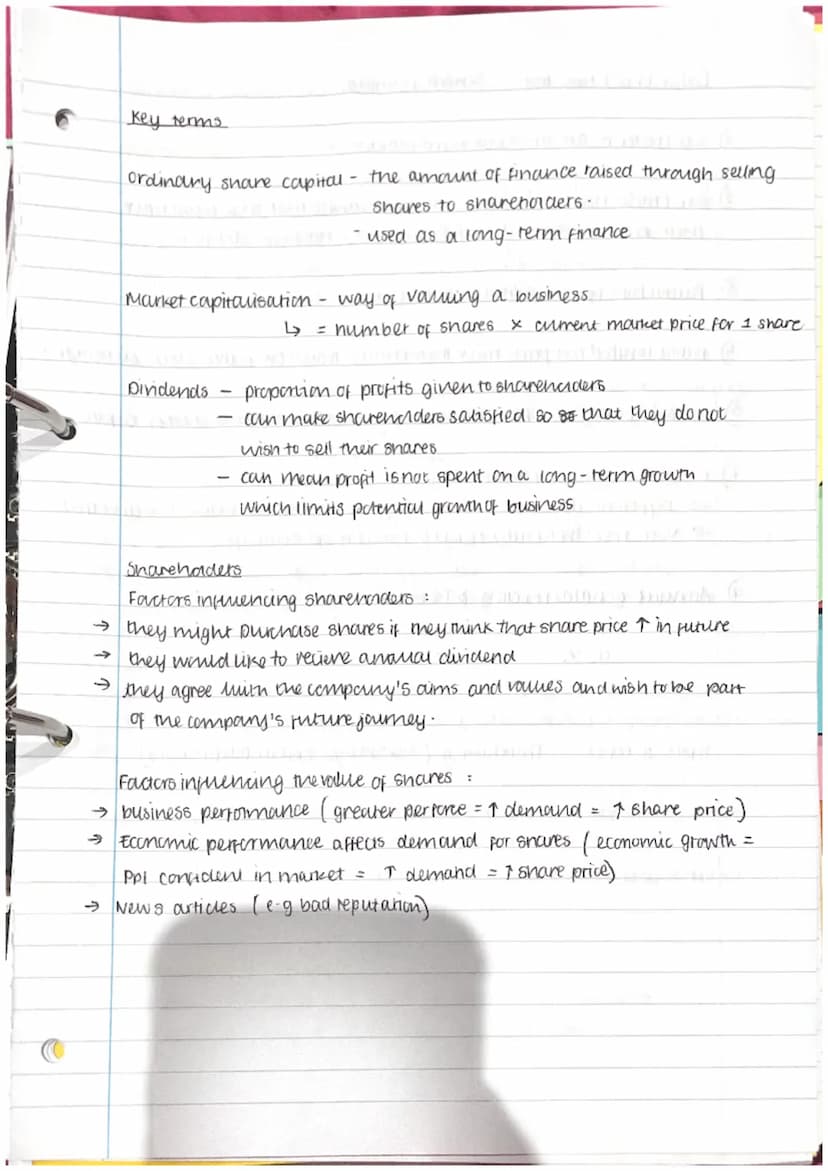 Key terms
Ordinary share capital - the amount of finance raised through selling
shares to shareholders.
- used as a long-term finance
Market capitalisation - way of valuing a business
↳ = number of shares × current market price for 1 share
Dividends - proportion of profits given to shareholders
- can make shareholders satisfied so that they do not
wish to sell their shares
- can mean profit is not spent on a long-term growth
which limits potential growth of business
Shareholders
Factors influencing shareholders :
→ they might purchase shares if they think that share price ↑ in future
→ they would like to recieve annual dividend
→ they agree with the company's aims and values and wish to be part
of the company's future journey.
Factors influencing the value of shares :
→ business performance ( greater perforce = ↑ demand = ↑ share price )
→ Economic performance affects demand for shares ( economic growth =
Ppl confident in market = ↑ demand = ↑ share price)
→ News articles ( e.g bad reputation)